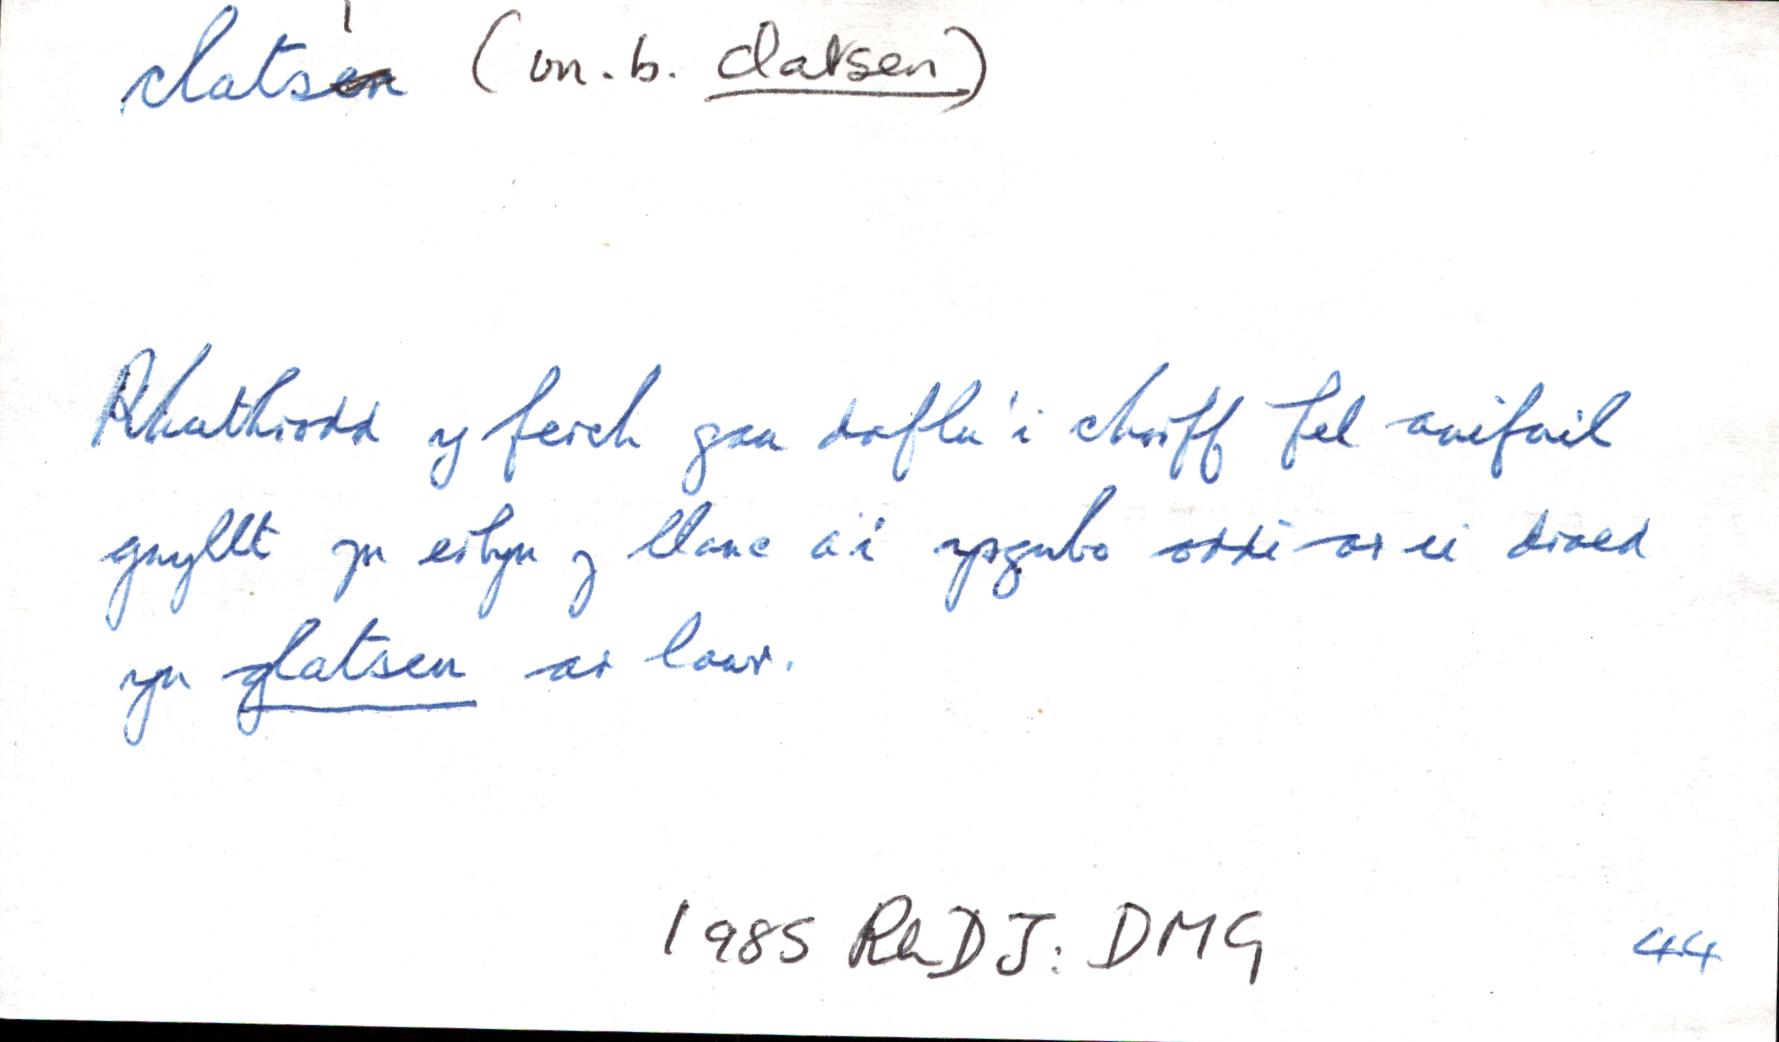 clats¹ (un. b. clatsen)
Rhuthrodd y ferch gan daflu'i chorff fel anifail
gwyllt yn erbyn y llanc a'i ysgubo oddi ar ei draed
yn glatsen ar lawr.
1985 RhDJ: DMG 44